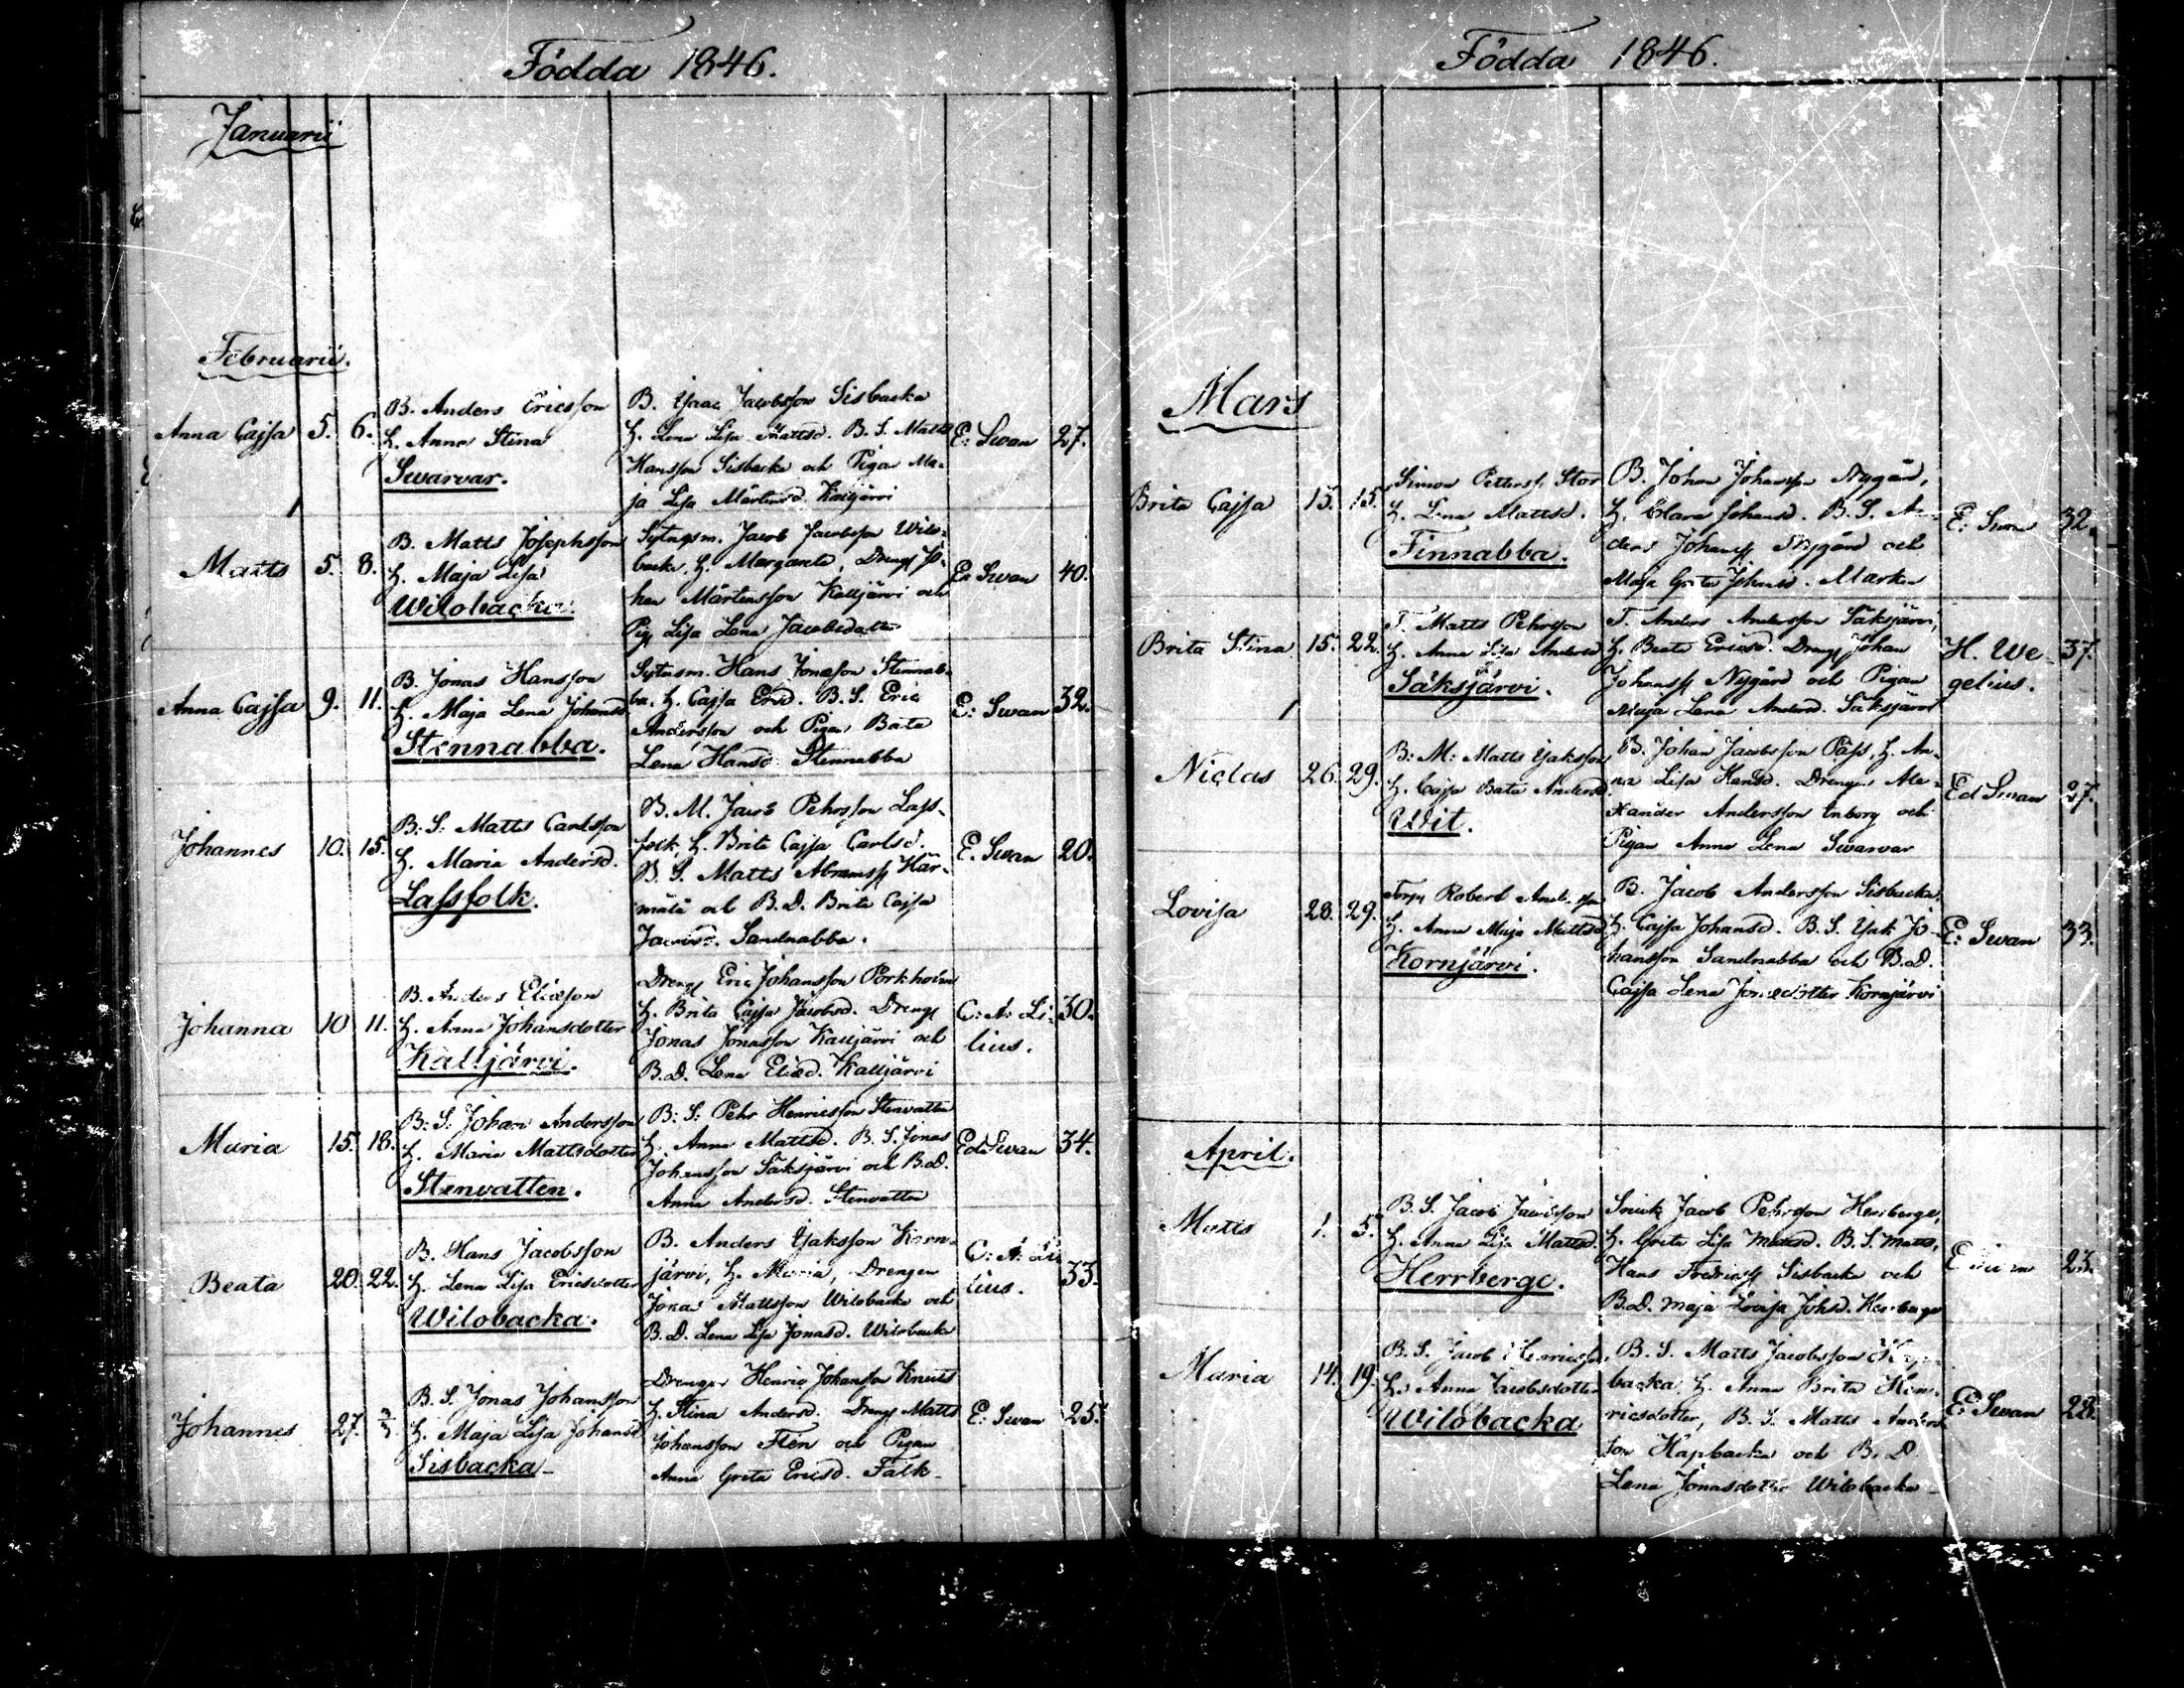 Födda 1846.
Januarii
Februarii.
Anna Cajsa 5. 6.
B. Anders Ericsson
H. Anna Stina
Swarvar.
B. Isaac Jacobsson Sisbacka
H. Lena Lisa Mattsd. B. S. Matts
Hansson Sisbacka och Pigan Ma-
ja Lisa Mårtensd. Kalljärvi
E: Swan 27.
Matts 5. 8.
B. Matts Josephsson
H. Maja Lisa
Wilobacka.
Sytngsm. Jacob Jacobsson Wilo-
backa, H. Margareta, Dreng Jo-
han Mårtensson Kalljärvi och
Pig Lisa Lena Jacobsdotter
E: Swan 40.
Anna Cajsa 9. 11.
B. Jonas Hansson
H. Maja Lena Johansd.
Stennabba.
Sytnsm. Hans Jonasson Stennab-
ba, H. Cajsa Ersd. B. S. Eric
Andersson och Pigan Bata
Lena Hansd. Stennabba
E: Swan 32.
Johannes 10. 15.
B: S: Matts Carlsson
H. Maria Andersd.
Lassfolk.
B. M. Jacob Pehrsson Lass-
folk, H. Brita Cajsa Carlsd.
B. S. Matts Abramss Här-
mälä och B. D. Brita Cajsa
Jacobsd. Sandnabba.
E. Swan 20.
Johanna 10 11.
B. Anders Eliasson
H. Anna Johansdotter
Kalljärvi.
Dreng Eric Johansson Porkholm
H. Brita Cajsa Jacobsd. Dreng
Jonas Jonasson Kalljärvi och
B. D. Lena Eliasd. Kalljärvi
C: A: Li- 30.
lius.
Maria 15. 18.
B: S. Johan Andersson
H. Maria Mattsdotter
Stenvatten.
B: S: Pehr Henricsson Stenvatten
H. Anna Mattsd. B. S. Jonas
Johansson Säksjärvi och B. D.
Anna Andersd. Stenvatten
Ed Swan 34.
Beata 20. 22.
B. Hans Jacobsson
H. Lena Lisa Ericsdotter
Wilobacka.
B. Anders Isaksson Korn-
järvi, H. Maria, Drengen
Jonas Mattsson Wilobacka och
B. D. Lena Lisa Jonasd. Wilobacka
C: A: Li
lius. 33.
Johannes 27. 3/3
B. S. Jonas Johansson
H. Maja Lisa Johansd.
Sisbacka-
Drengen Henric Johansson Knuts
H. Stina Andersd. Dreng Matts
Johansson Flén och Pigan
Anna Greta Ericsd. Falk-
E: Swan 25.
Födda 1846.
Mars
Brita Cajsa 15. 15.
Simon Petterss. Stor
H. Lena Mattsd.
Finnabba.
B. Johan Johansson Nygård,
H. Clara Johansd. B. S. An-
ders Johanss Nygård och
Maja Greta Johansd. Marken
E: Swan 32.
Brita Stina 15. 22.
T. Matts Pehrsson
H. Anna Lisa Andersd.
Säksjärvi.
T. Anders Andersson Säksjärvi,
H. Beata Ericsd. Dreng Johan
Johanss Nygård och Pigan
Maja Lena Andersd. Säksjärvi
H. We- 37.
gelius.
Niclas 26. 29.
B: M: Matts Isaksson
H. Cajsa Bata Andersd.
Wit.
B. Johan Jacobsson Päss, H. An-
na Lisa Hansd. Drengen Ale-
xander Andersson Enborg och
Pigan Anna Lena Swarvar
Ed Swan 27.
Lovisa 28. 29.
Torp Robert Andersson
H. Anna Maja Mattsd.
Kornjärvi.
B. Jacob Andersson Sisbacka,
H. Cajsa Johansd. B. S. Isak Jo-
hansson Sandnabba och B. D.
Cajsa Lena Jonasdotter Kornjärvi
E: Swan 33.
April.
Matts 1. 5.
B. S. Jacob Jacobsson
H. Anna Lisa Mattsd.
Herrberge.
Jacob Pehrsson Herrberge,
H. Greta Lisa Mattsd. B. S. Matts,
Hans Fredricss Sisbacka och
B. D. Maja Lovisa Johsd. Herrberge
E Swan 23.
Maria 14. 19.
B. S. Jacob Henricsson
H. Anna Jacobsdotter
Wilobacka
B. S. Matts Jacobsson Kap
backa, H. Anna Brita Hen-
ricsdotter, B. S. Matts Anders
son Kapbacka och B. D.
Lena Jonasdotter Wilobacka-
E: Swan 28.